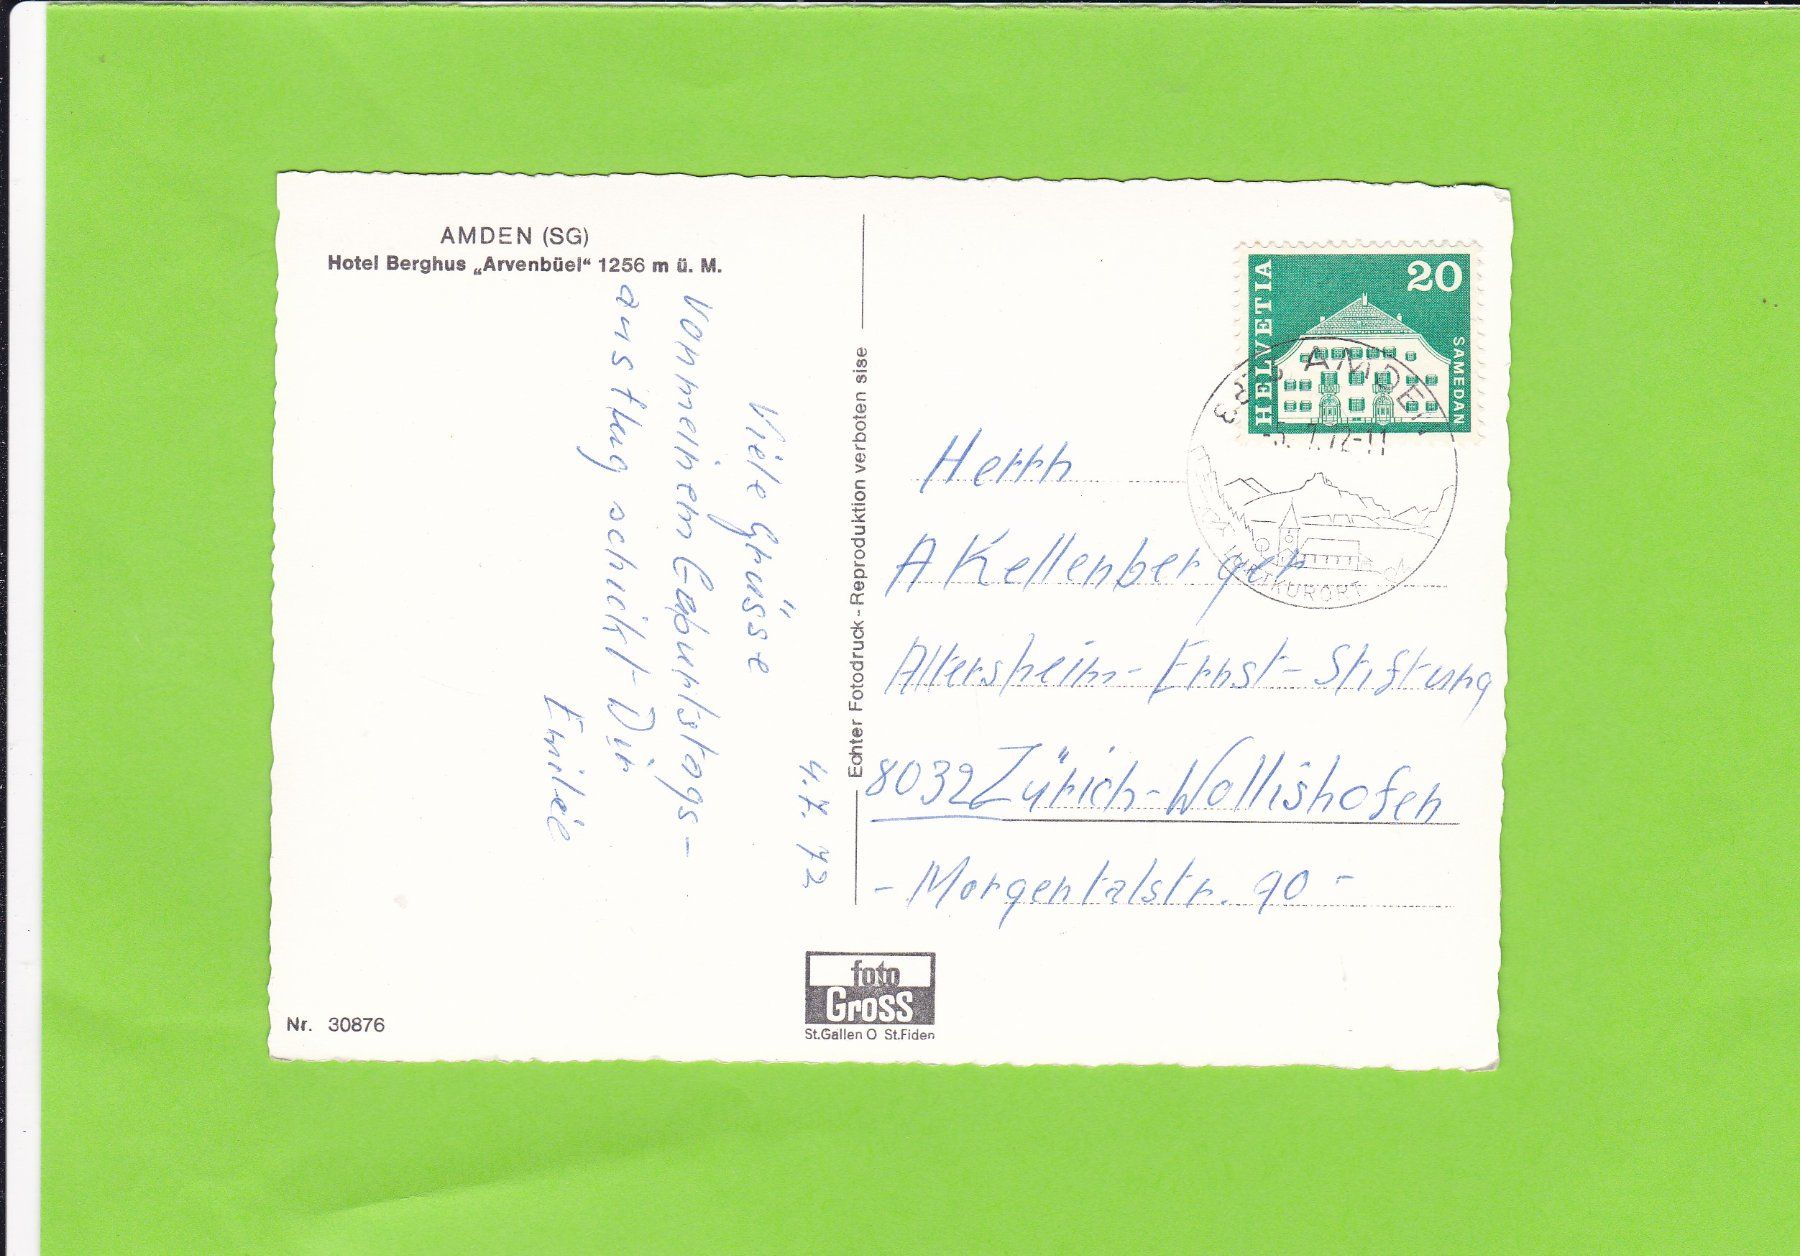 AMDEN (SG)
Hotel Berghus „Arvenbüel“ 1256 m ü. M.
4. 7. 72
Viele Grüsse
von meinem Geburtstags-
ausflug schickt Dir
Emilie
Echter Fotodruck - Reproduktion verboten sise
HELVETIA
20
SAMEDAN
AMDEN
-5. 7.72-11
LUFTKURORT
Herrn
A Kellenberger
Altersheim- Ernst- Stiftung
8032 Zürich-Wollishofen
- Morgentalstr. 90 -
foto
Gross
St.Gallen O St.Fiden
Nr. 30876